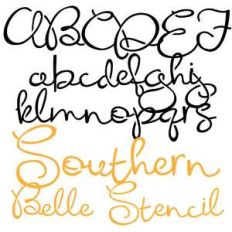 ABCDEF
abcdefghij
klmnopqrs
Southern
Belle Stencil